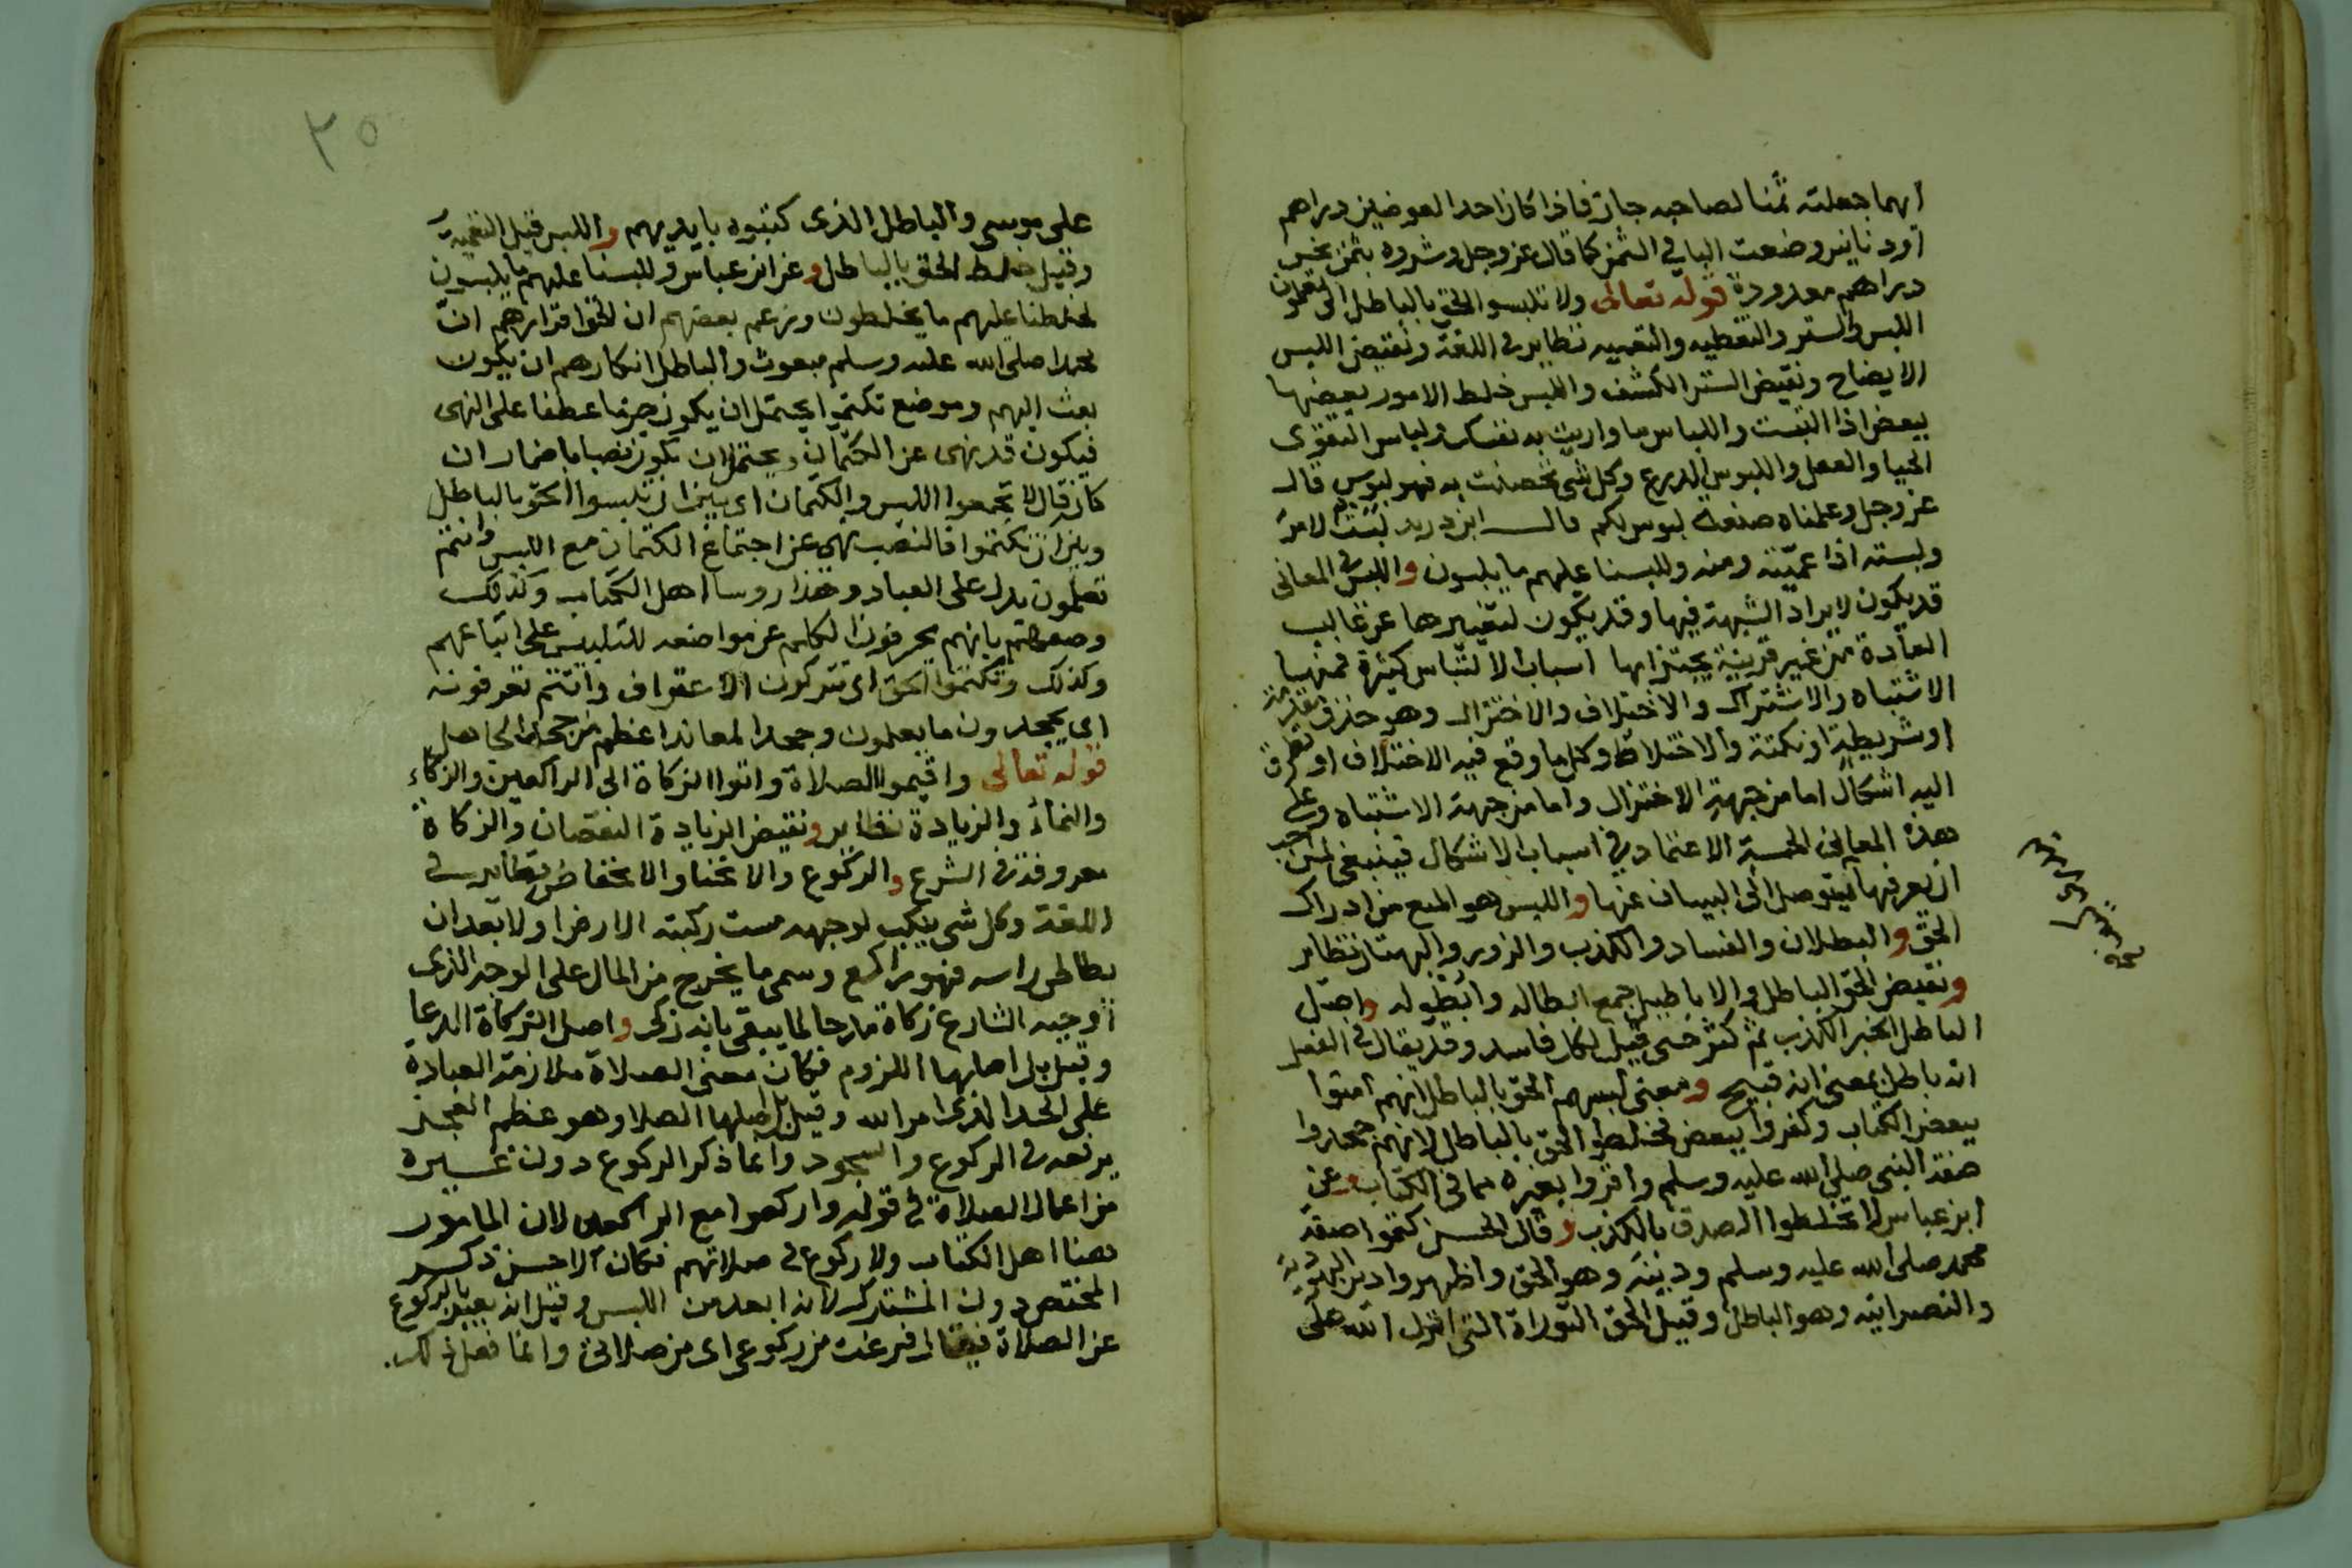 ايهما جعلته ثمنا لصاحبه جاز فاذا كان احد العوضين دراهم
او دنانير وضعت البا في الثمن كما قال عز وجل وشروه بثمن بخس
دراهم معدودة قوله تعالى ولا تلبسوا الحق بالباطل الى تعلمون
اللبس والستر والتغطيه والتعميه نظاير في اللغة ونقيض اللبس
الايضاح ونقيض الستر الكشف واللبس خلط الامور بعضها
ببعض اذا التبست واللباس ما واريت به نفسك ولباس التقوى
الحيا والعمل واللبوس الدرع وكل شى تحصنت به فهو لبوس قال
عز وجل وعلمناه صنعة لبوس لكم قال ابن دريد لبست الامر
ولبسته اذا عميته ومنه وللبسنا عليهم ما يلبسون واللبس في المعانى
قد يكون لايراد الشبهة فيها وقد يكون لتغييرها عن غالب
العادة من غير قرينة اسباب الالتباس كثيرة فمنها
الاشتباه والاشتراك والاختلاف والاختزال وهو حذف مقدمة
او شريطة او نكتة والاختلاط وكل ما وقع فيه الاختلاف او تطرق
اليه اشكال اما من جهة الاختزال واما من جهة الاشتباه وعلى
هذه المعانى الخمسة الاعتماد في اسباب الاشكال فينبغى لمن احب
ان يعرفها ليتوصل الى البيان عنها واللبس هو المنع من ادراك
الحق والبطلان والفساد والكذب والزور والبهتان نظاير
ونقيض الحق الباطل والاباطيل جمع ابطاله وابطوله واصل
الباطل الخبر الكذب ثم كثر حتى قيل لكل فاسد وقد يقال في الفعل
انه باطل بمعنى انه قبيح ومعنى لبسهم الحق بالباطل انهم امنوا
ببعض الكتاب وكفروا ببعض فخلطوا الحق بالباطل لانهم جحدوا
صفة النبى صلى الله عليه وسلم واقروا بغيره مما في الكتاب وعن
ابن عباس لا تخلطوا الصدق بالكذب وقال الحسن كتموا صفة
محمد صلى الله عليه وسلم ودينه وهو الحق واظهروا دين اليهودية
والنصرانيه وهو الباطل وقيل الحق التوراة التى انزل الله على
٣٥
على موسى والباطل الذى كتبوه بايديهم واللبس قيل التعمية
وقيل خلط الحق بالباطل وعن ابن عباس وللبسنا عليهم ما يلبسون
لخلطنا عليهم ما يخلطون وزعم بعضهم ان الحق اقرارهم ان
محمدا صلى الله عليه وسلم مبعوث والباطل انكارهم ان يكون
بعث اليهم وموضع تكتموا يحتمل ان يكون جزما عطفا على النهى
فيكون قد نهى عن الكتمان ويحتمل ان يكون نصبا باضمار ان
كان قال لا تجمعوا اللبس والكتمان اى بين ان تلبسوا الحق بالباطل
وبين ان تكتموا فالنصب نهى عن اجتماع الكتمان مع اللبس وانتم
تعلمون يدل على العباد وهذا روسا اهل الكتاب وكذلك
وصفهم بانهم يحرفون الكلم عن مواضعه للتلبيس على اتباعهم
وكذلك وتكتموا الحق اى تتركون الاعتراف وانتم تعرفونه
اى يجحدون ما يعلمون وجحد المعاند اعظم من جحد الجاهل
قوله تعالى واقيموا الصلاة واتوا الزكاة الى الراكعين والزكاء
والنماء والزيادة نظاير ونقيض الزيادة النقصان والزكاة
معروفة في الشرع والركوع والانحنا والانخفاض نظاير في
اللغة وكل شى ينكب لوجهه مست ركبته الارض او لا بعد ان
يطاطى راسه فهو راكع وسمى ما يخرج من المال على الوجه الذى
اوجبه الشارع زكاة مدحا لما يبقى بانه زكى واصل الزكاة الدعا
وقيل بل اصلها اللزوم فكان معنى الصلاة ملازمة العبادة
على الحد الذى امر الله وقيل بل اصلها الصلا وهو عظم العجز
يرفعه في الركوع والسجود وانما ذكر الركوع دون غيره
من اعمال الصلاة في قوله واركعوا مع الراكعين لان المامور
هنا اهل الكتاب ولا ركوع في صلاتهم فكان الاحسن ذكر
المختص دون المشترك لانه ابعد من اللبس وقيل انه يعبر بالركوع
عن الصلاة فيقال فرغت من ركوعى اى من صلاتى وانما فعل ذلك